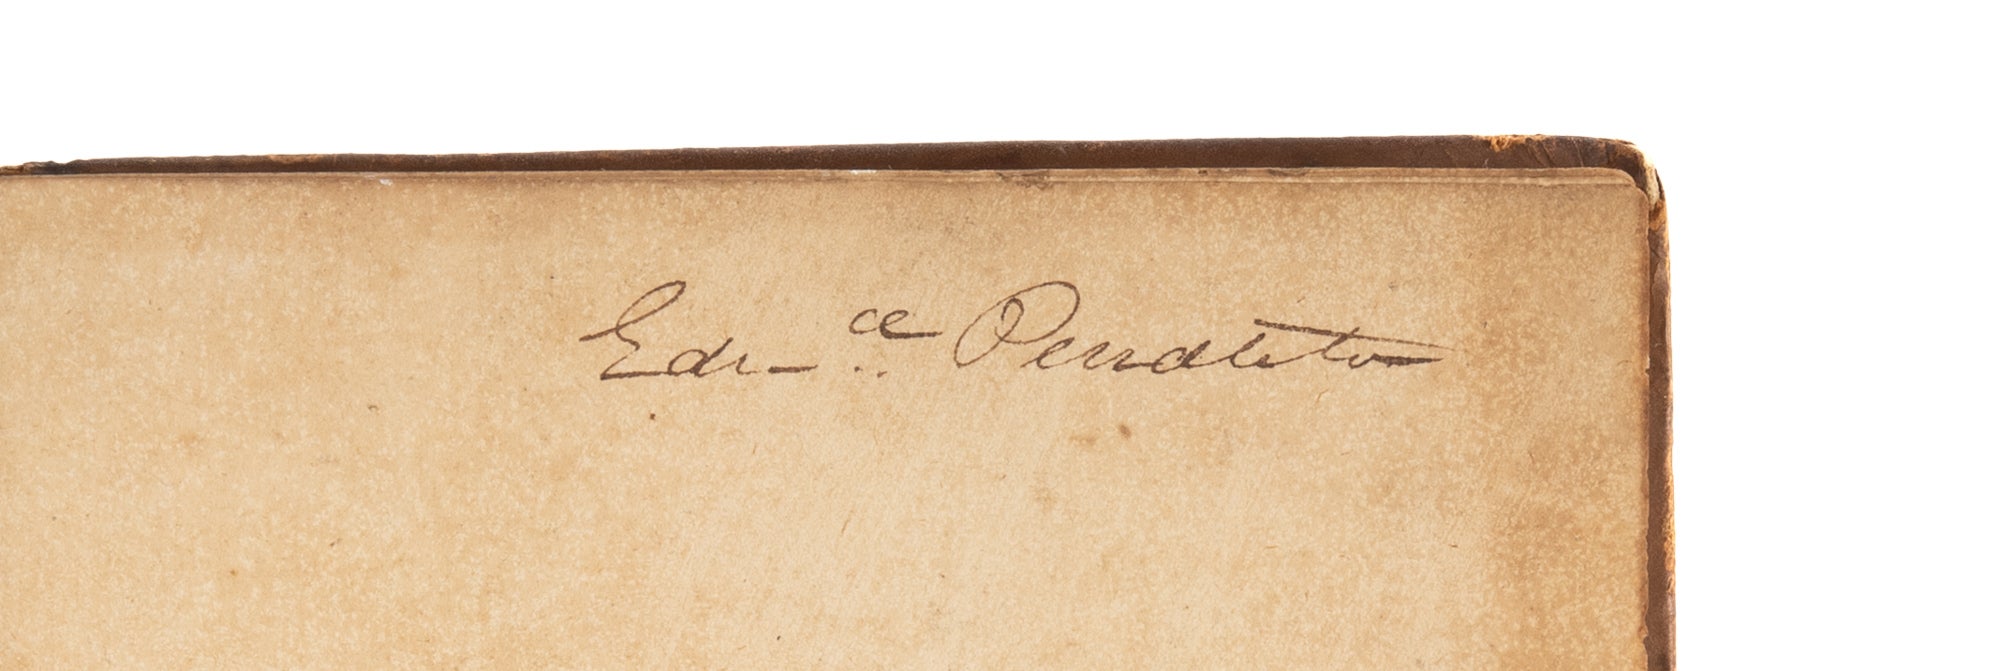 Edm ce Pendleton